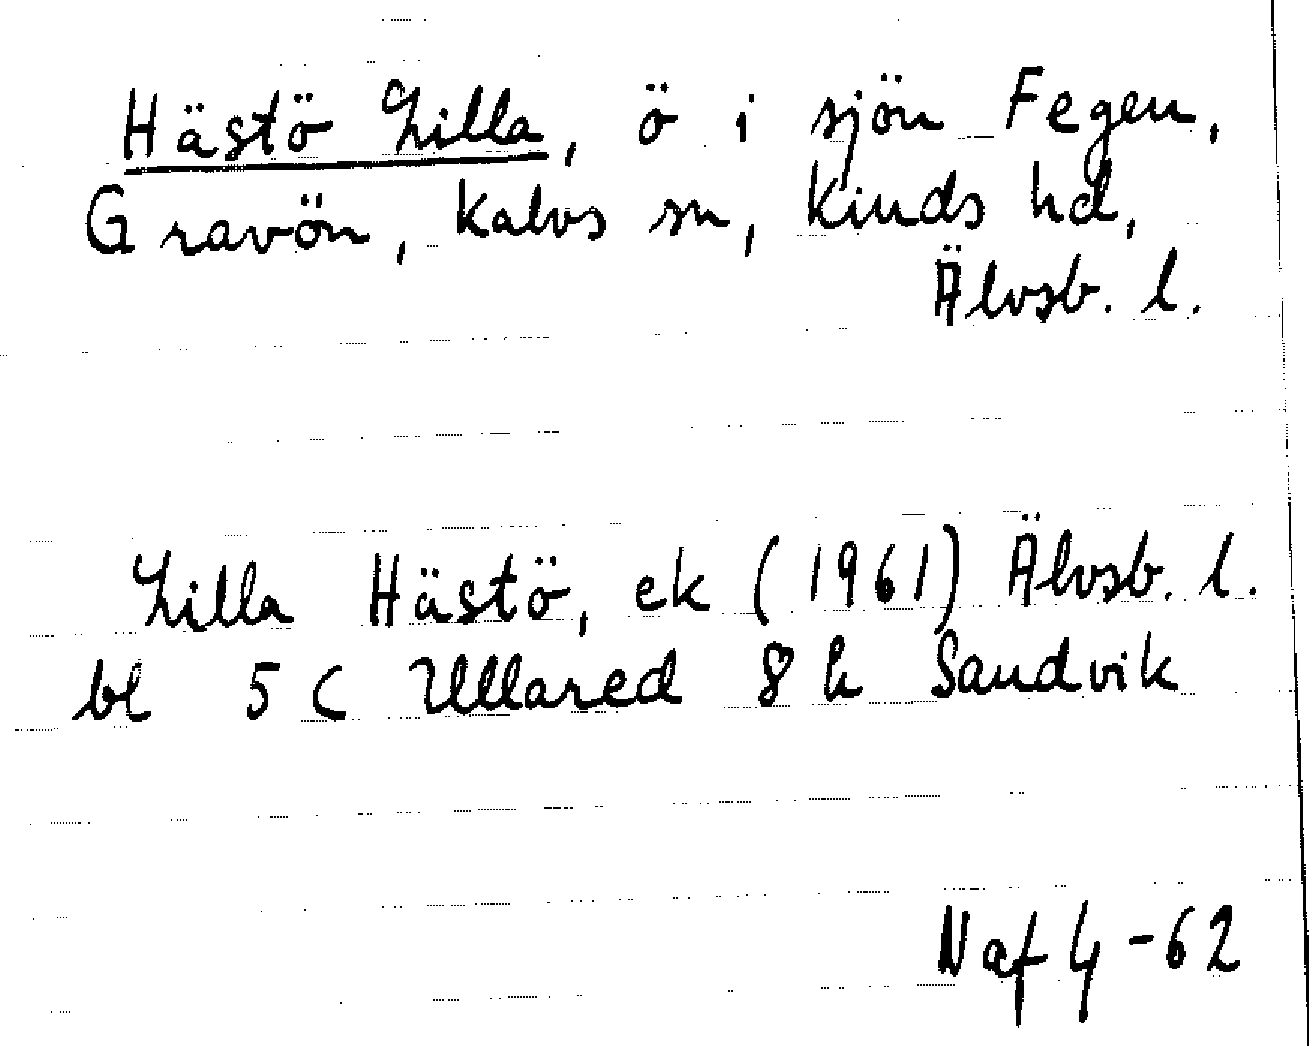 Hästö Lilla, ö i sjön Fegen,
Gravön, Kalvs sn, Kinds hd,
Älvsb. l.
Lilla Hästö, ek (1961) Älvsb. l.
bl 5 C Ullared 8 h Sandvik
Naf 4-62